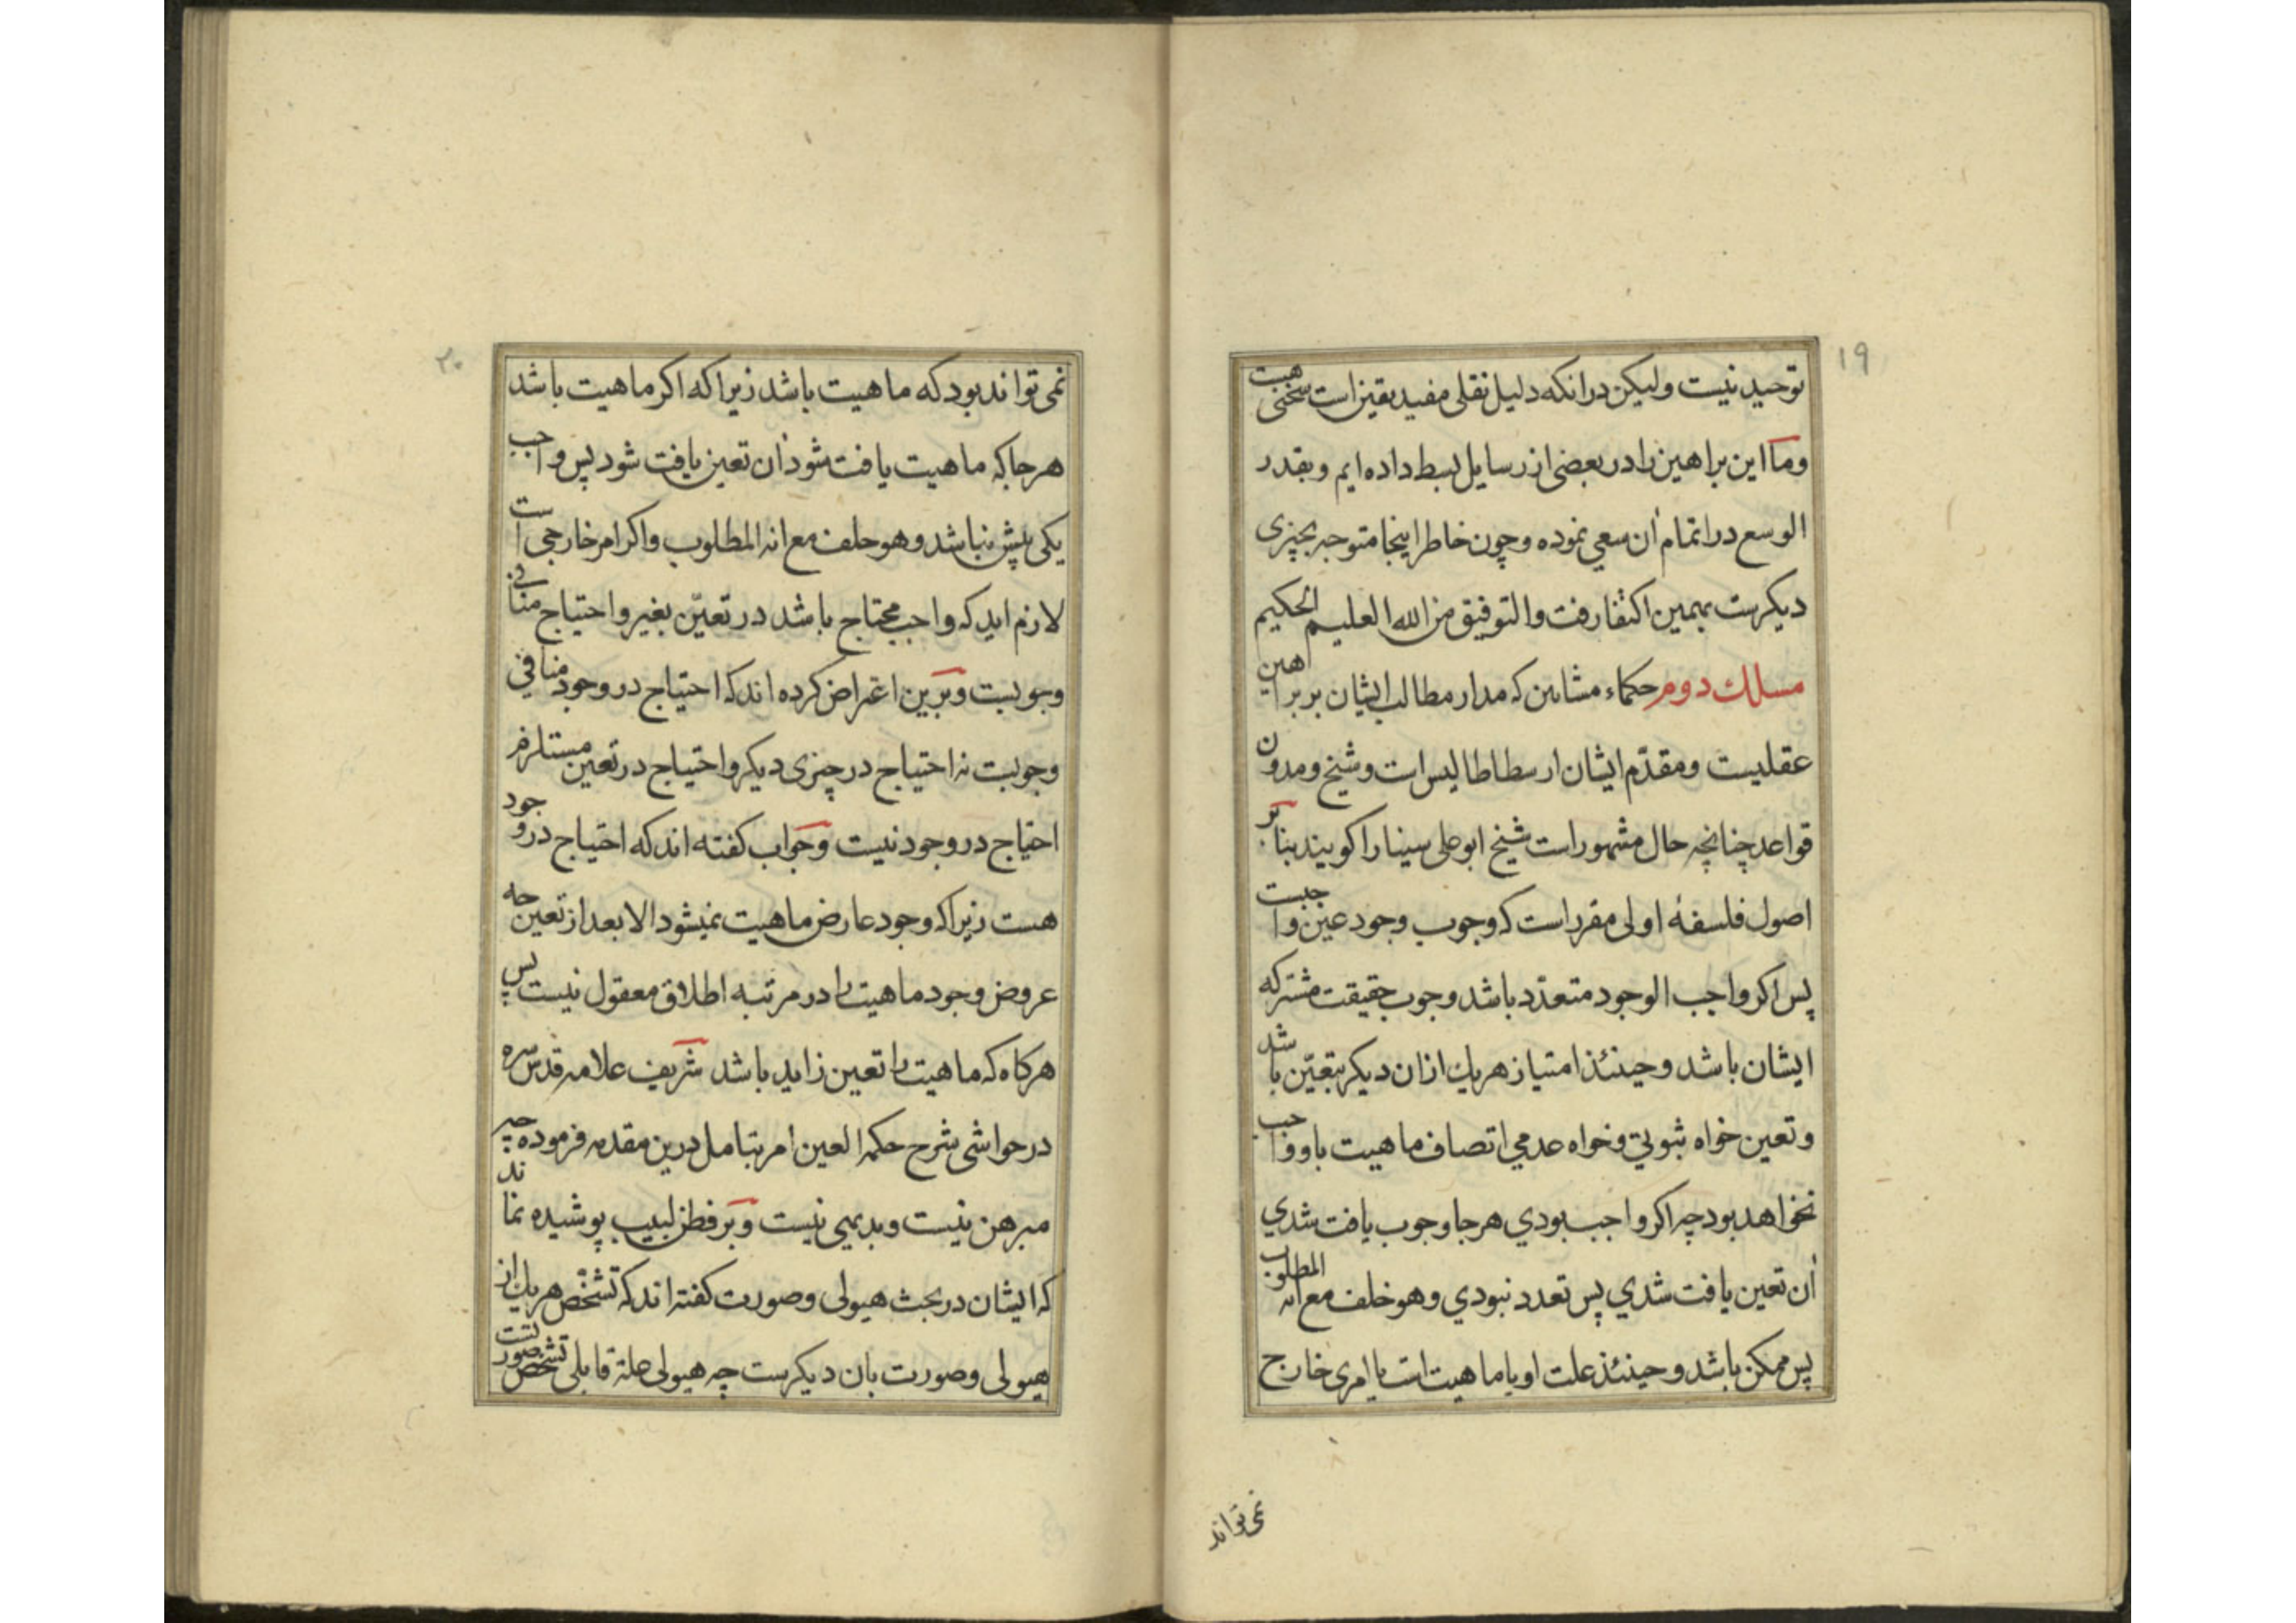 ۱۹
توحید نیست ولیکن در انکه دلیل نقلی مفید یقین است سخنی هست
وما این براهین را در بعضی از رسایل بسط داده ایم وبقدر
الوسع در اتمام آن سعی نموده وچون خاطر اینجا متوجه بچیزی
دیکرست بهمین اکتفا رفت والتوفیق من الله العلیم الحکیم
مسلک دوم حکماء مشاین که مدار مطالب ایشان بر براهین
عقلیست ومقدّم ایشان ارسطاطالیس است وشیخ ومدون
قواعد چنانچه حال مشهور است شیخ ابو علی سینا را کویند بنا بر
اصول فلسفهٔ اولی مقرر است که وجوب وجود عین واجبست
پس اکر واجب الوجود متعدّد باشد وجوب حقیقت مشترکه
ایشان باشد وحینئذ امتیاز هریک از ان دیکر بتعیّن باشد
وتعین خواه ثبوتي وخواه عدمي اتصاف ماهیت باو واجب
نخواهد بود چه اکر واجب بودي هرجا وجوب یافت شدي
آن تعین یافت شدي پس تعدد نبودي وهو خلف مع انه المطلوب
پس ممکن باشد وحینئذ علت او یا ماهیت است یا امری خارج
نمی تواند
۲۰
نمی تواند بود که ماهیت باشد زیرا که اکر ماهیت باشد
هرجا که ماهیت یافت شود آن تعین یافت شود پس واجب
یکی بیش نباشد وهو خلف مع انه المطلوب واکر امر خارجی است
لازم اید که واجب محتاج باشد در تعیّن بغیر واحتیاج منافی
وجوبست وبرین اعتراض کرده اند که احتیاج در وجود منافي
وجوبست نه احتیاج در چیزی دیکر واحتیاج در تعین مستلزم
احتیاج در وجود نیست وجواب کفته اند که احتیاج در وجود
هست زیرا که وجود عارض ماهیت نمیشود الا بعد از تعین چه
عروض وجود ماهیت را در مرتبه اطلاق معقول نیست پس
هرکاه که ماهیت را تعین زاید باشد شریف علامه قدس سره
در حواشی شرح حکمة العین امر بتامل درین مقدمه فرموده چه
مبرهن نیست وبدیهی نیست وبر فطن لبیب پوشیده نماند
که ایشان در بحث هیولی وصورت کفته اند که تشخّص هریک از
هیولی وصورت بان دیکرست چه هیولی علة قابلی تشخص صورتست